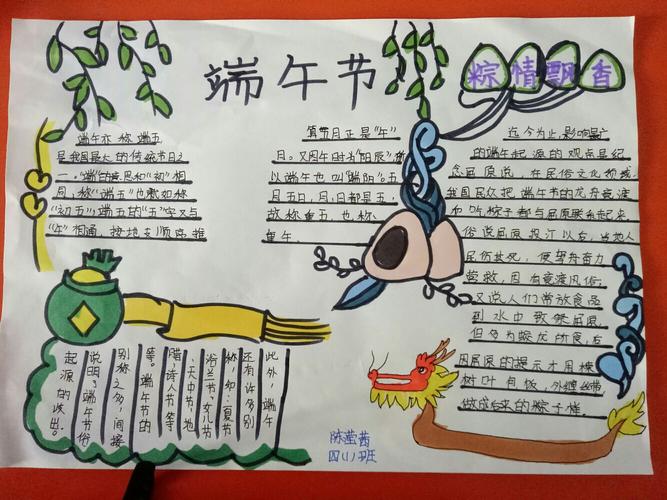 端午节
粽情飘香
端午亦称端五
是我国最大的传统节日之
一。"端"的意思和"初"相
同，称"端五"也就如称
"初五"；端五的"五"字又与
"午"相通，按地支顺序推
算节月正是"午"
日。又因午时为"阳辰"所
以端午也叫"端阳"。五
月五日，月、日都是五
故称重五，也称
重午。
迄今为止，影响最广
的端午起源的观点是纪
念屈原说，在民俗文化领域
我国民众把端午节的龙舟竞渡
和吃粽子都与屈原联系起来
俗说屈原投江以后，当地人
民伤其死，便驾舟奋力
营救，因有竞渡风俗；
又说人们常放食品
到水中致祭屈原
但多为蛟龙所食，后
因屈原的提示才用楝
树叶包饭，外缠丝带
做成后来的粽子样。
此外，端午
还有许多别
称，如：夏节
浴兰节、女儿节
、天中节、地
腊、诗人节等
等。端午节的
别称之多，间接
说明了端午节俗
起源的歧出。
陈莹茜
四(1)班